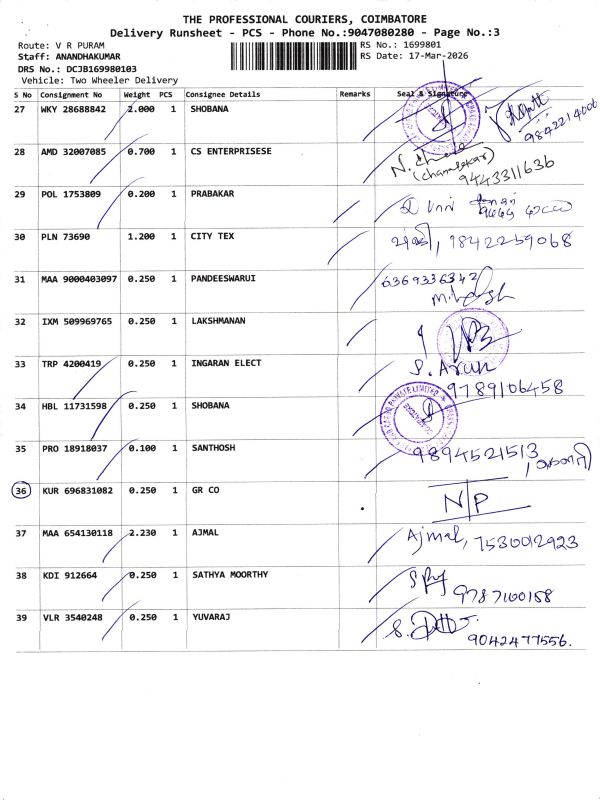 THE PROFESSIONAL COURIERS, COIMBATORE
Delivery Runsheet - PCS - Phone No.:9047080280 - Page No.:3
Route: V R PURAM RS No.: 1699801
Staff: ANANDHAKUMAR RS Date: 17-Mar-2026
DRS No.: DCJB169980103
Vehicle: Two Wheeler Delivery
S No Consignment No Weight PCS Consignee Details Remarks Seal & Signature
27 WKY 28688842 2.000 1 SHOBANA
9842214006
28 AMD 32007085 0.700 1 CS ENTERPRISESE
(chandsekar)
9443311636
29 POL 1753809 0.200 1 PRABAKAR
30 PLN 73690 1.200 1 CITY TEX 9842259068
31 MAA 9000403097 0.250 1 PANDEESWARUI 6369336342
32 IXM 509969765 0.250 1 LAKSHMANAN
33 TRP 4200419 0.250 1 INGARAN ELECT S. Arun
9789106458
34 HBL 11731598 0.250 1 SHOBANA
35 PRO 18918037 0.100 1 SANTHOSH 9894521513
36 KUR 696831082 0.250 1 GR CO N/P
37 MAA 654130118 2.230 1 AJMAL Ajmal, 7530012923
38 KDI 912664 0.250 1 SATHYA MOORTHY
9787100158
39 VLR 3540248 0.250 1 YUVARAJ
9042477556.